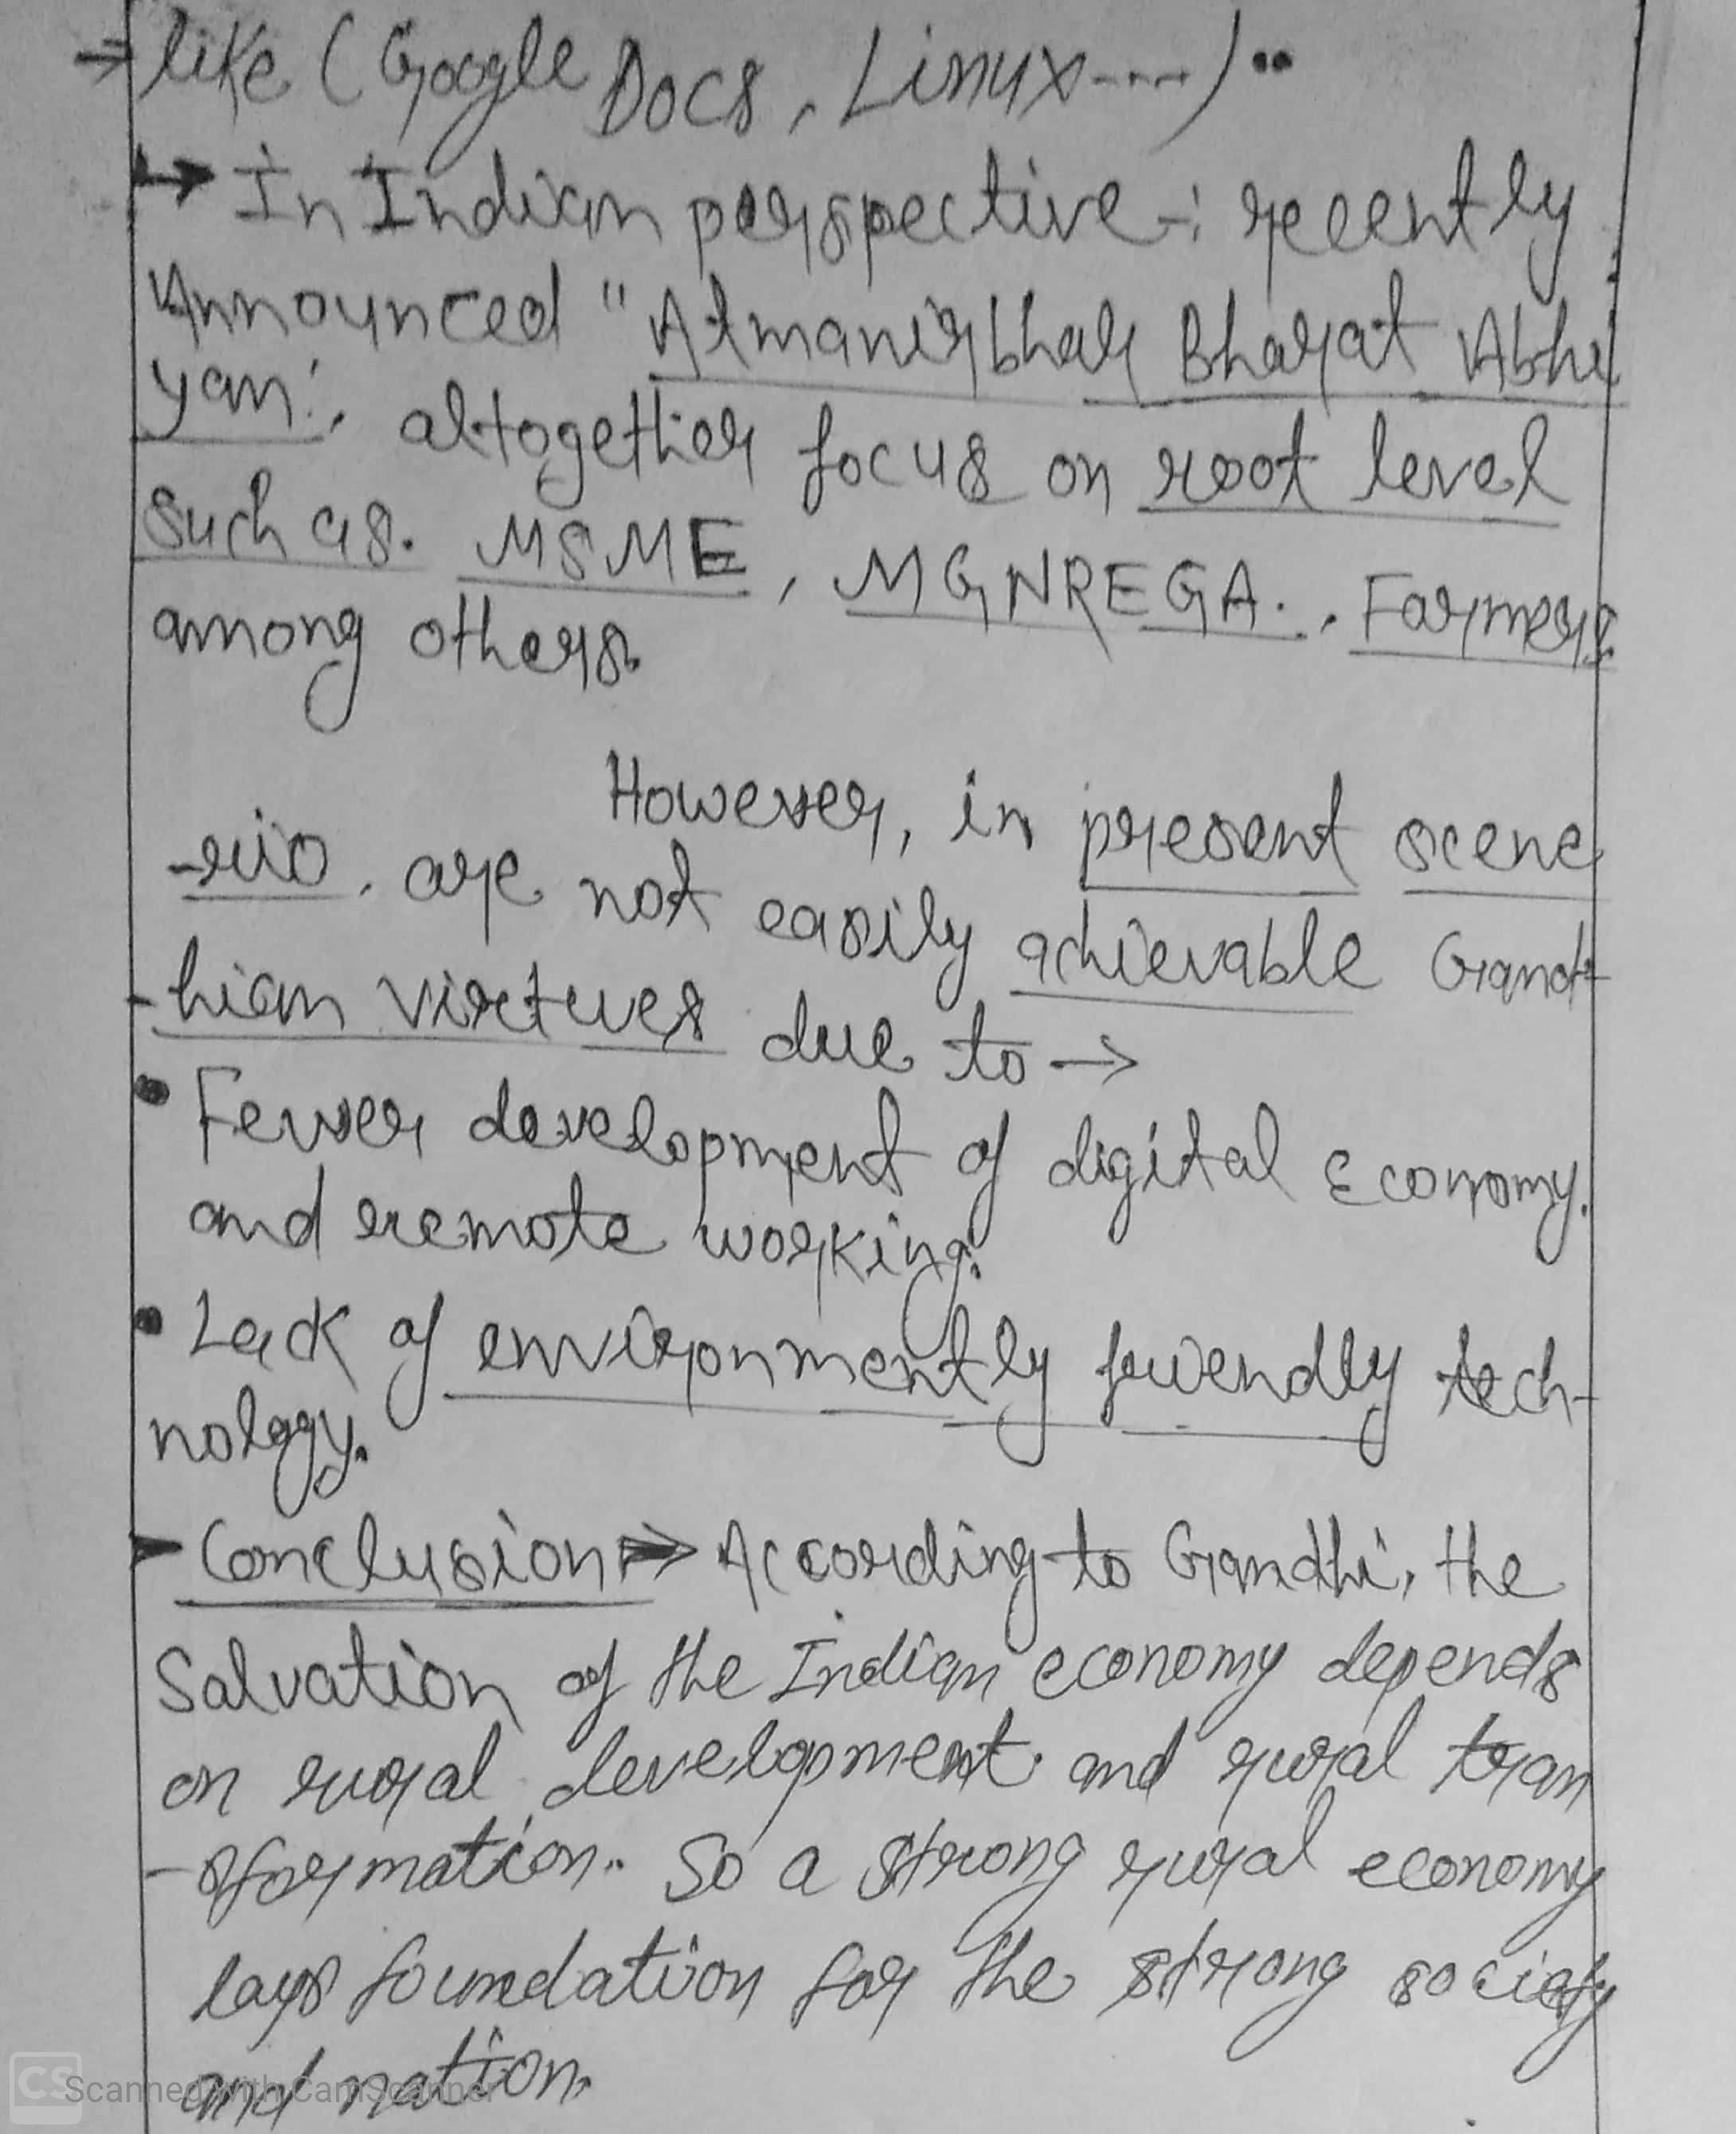 ⇒ like (Google Docs, Linux----)..
↳ In Indian perspective -: recently
Announced "Atmanirbhar Bharat Abhi
yan", altogether focus on root level
such as. MSME, MGNREGA., Farmers
among others.
However, in present scene
-rio, are not easily achievable Gand-
-hian virtues due to →
• Fewer development of digital Economy.
and remote working.
• Lack of environmently friendly tech-
nology.
► Conclusion ⇒ According to Gandhi, the
Salvation of the Indian economy depends
on rural development and rural tran
-sformation.. So a strong rural economy
lays foundation for the strong society
and nation.
CS Scanned with CamScanner